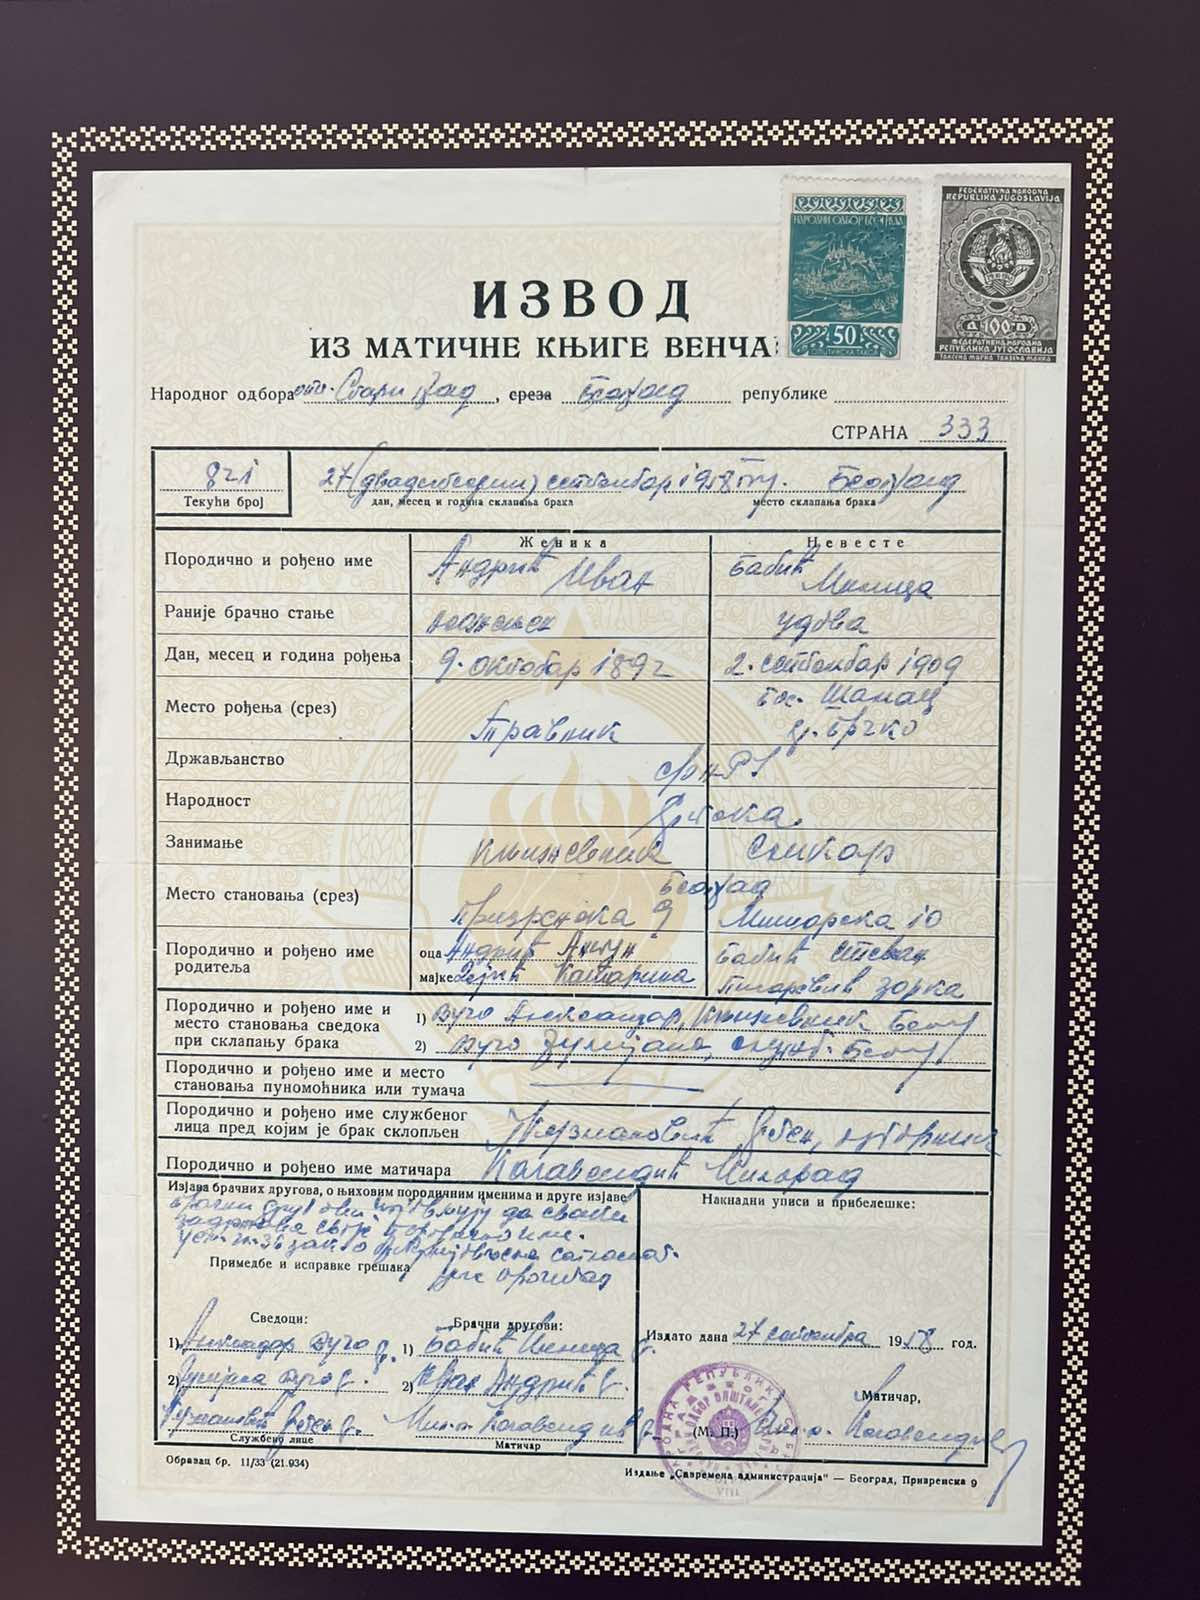 НАРОДНИ ОДБОР БЕОГРАДА
50
ОПШТИНСКА ТАКСА
FEDERATIVNA NARODNA
REPUBLIKA JUGOSLAVIJA
Д 100 D
ФЕДЕРАТИВНА НАРОДНА
РЕПУБЛИКА ЈУГОСЛАВИЈА
ТАКСЕНА МАРКА TAKSENA MARKA
ИЗВОД
ИЗ МАТИЧНЕ КЊИГЕ ВЕНЧА
Народног одбора опш. Стари Град, среза Београд републике
СТРАНА 333
821 27 (двадесетседми) септембар 1958 год. Београд
Текући број дан, месец и година склапања брака место склапања брака
Женика Невесте
Породично и рођено име Андрић Иван Бабић Милица
Раније брачно стање нежењен удова
Дан, месец и година рођења 9. октобар 1892 2. септембар 1909
Место рођења (срез) Травник Бос. Шамац Брчко
Држављанство ФНРЈ
Народност Српска
Занимање књижевник сликар
Место становања (срез) Београд
Призренска 9 Мишарска 10
Породично и рођено име оца Андрић Антун Бабић Стеван
родитеља мајке Пејић Катарина Зорка
Породично и рођено име и
место становања сведока 1) Вучо Александар, књижевник Беог.
при склапању брака 2) Вучо Јулијана, служб. Беог.
Породично и рођено име и место
становања пуномоћника или тумача
Породично и рођено име службеног
лица пред којим је брак склопљен одборник
Породично и рођено име матичара Милорад
Изјава брачних другова, о њиховим породичним именима и друге изјаве
Брачни другови изјављују да сваки
задржава своје породично име.
Примедбе и исправке грешака
Накнадни уписи и прибелешке:
Сведоци: Брачни другови:
1) Александар Вучо 1) Бабић Милица
2) Јулијана Вучо 2) Иван Андрић
Службено лице Матичар
Издато дана 27 септембра 1958 год.
Матичар,
(М. П.)
Образац бр. 11/33 (21.934)
Издање „Савремена администрација" — Београд, Призренска 9